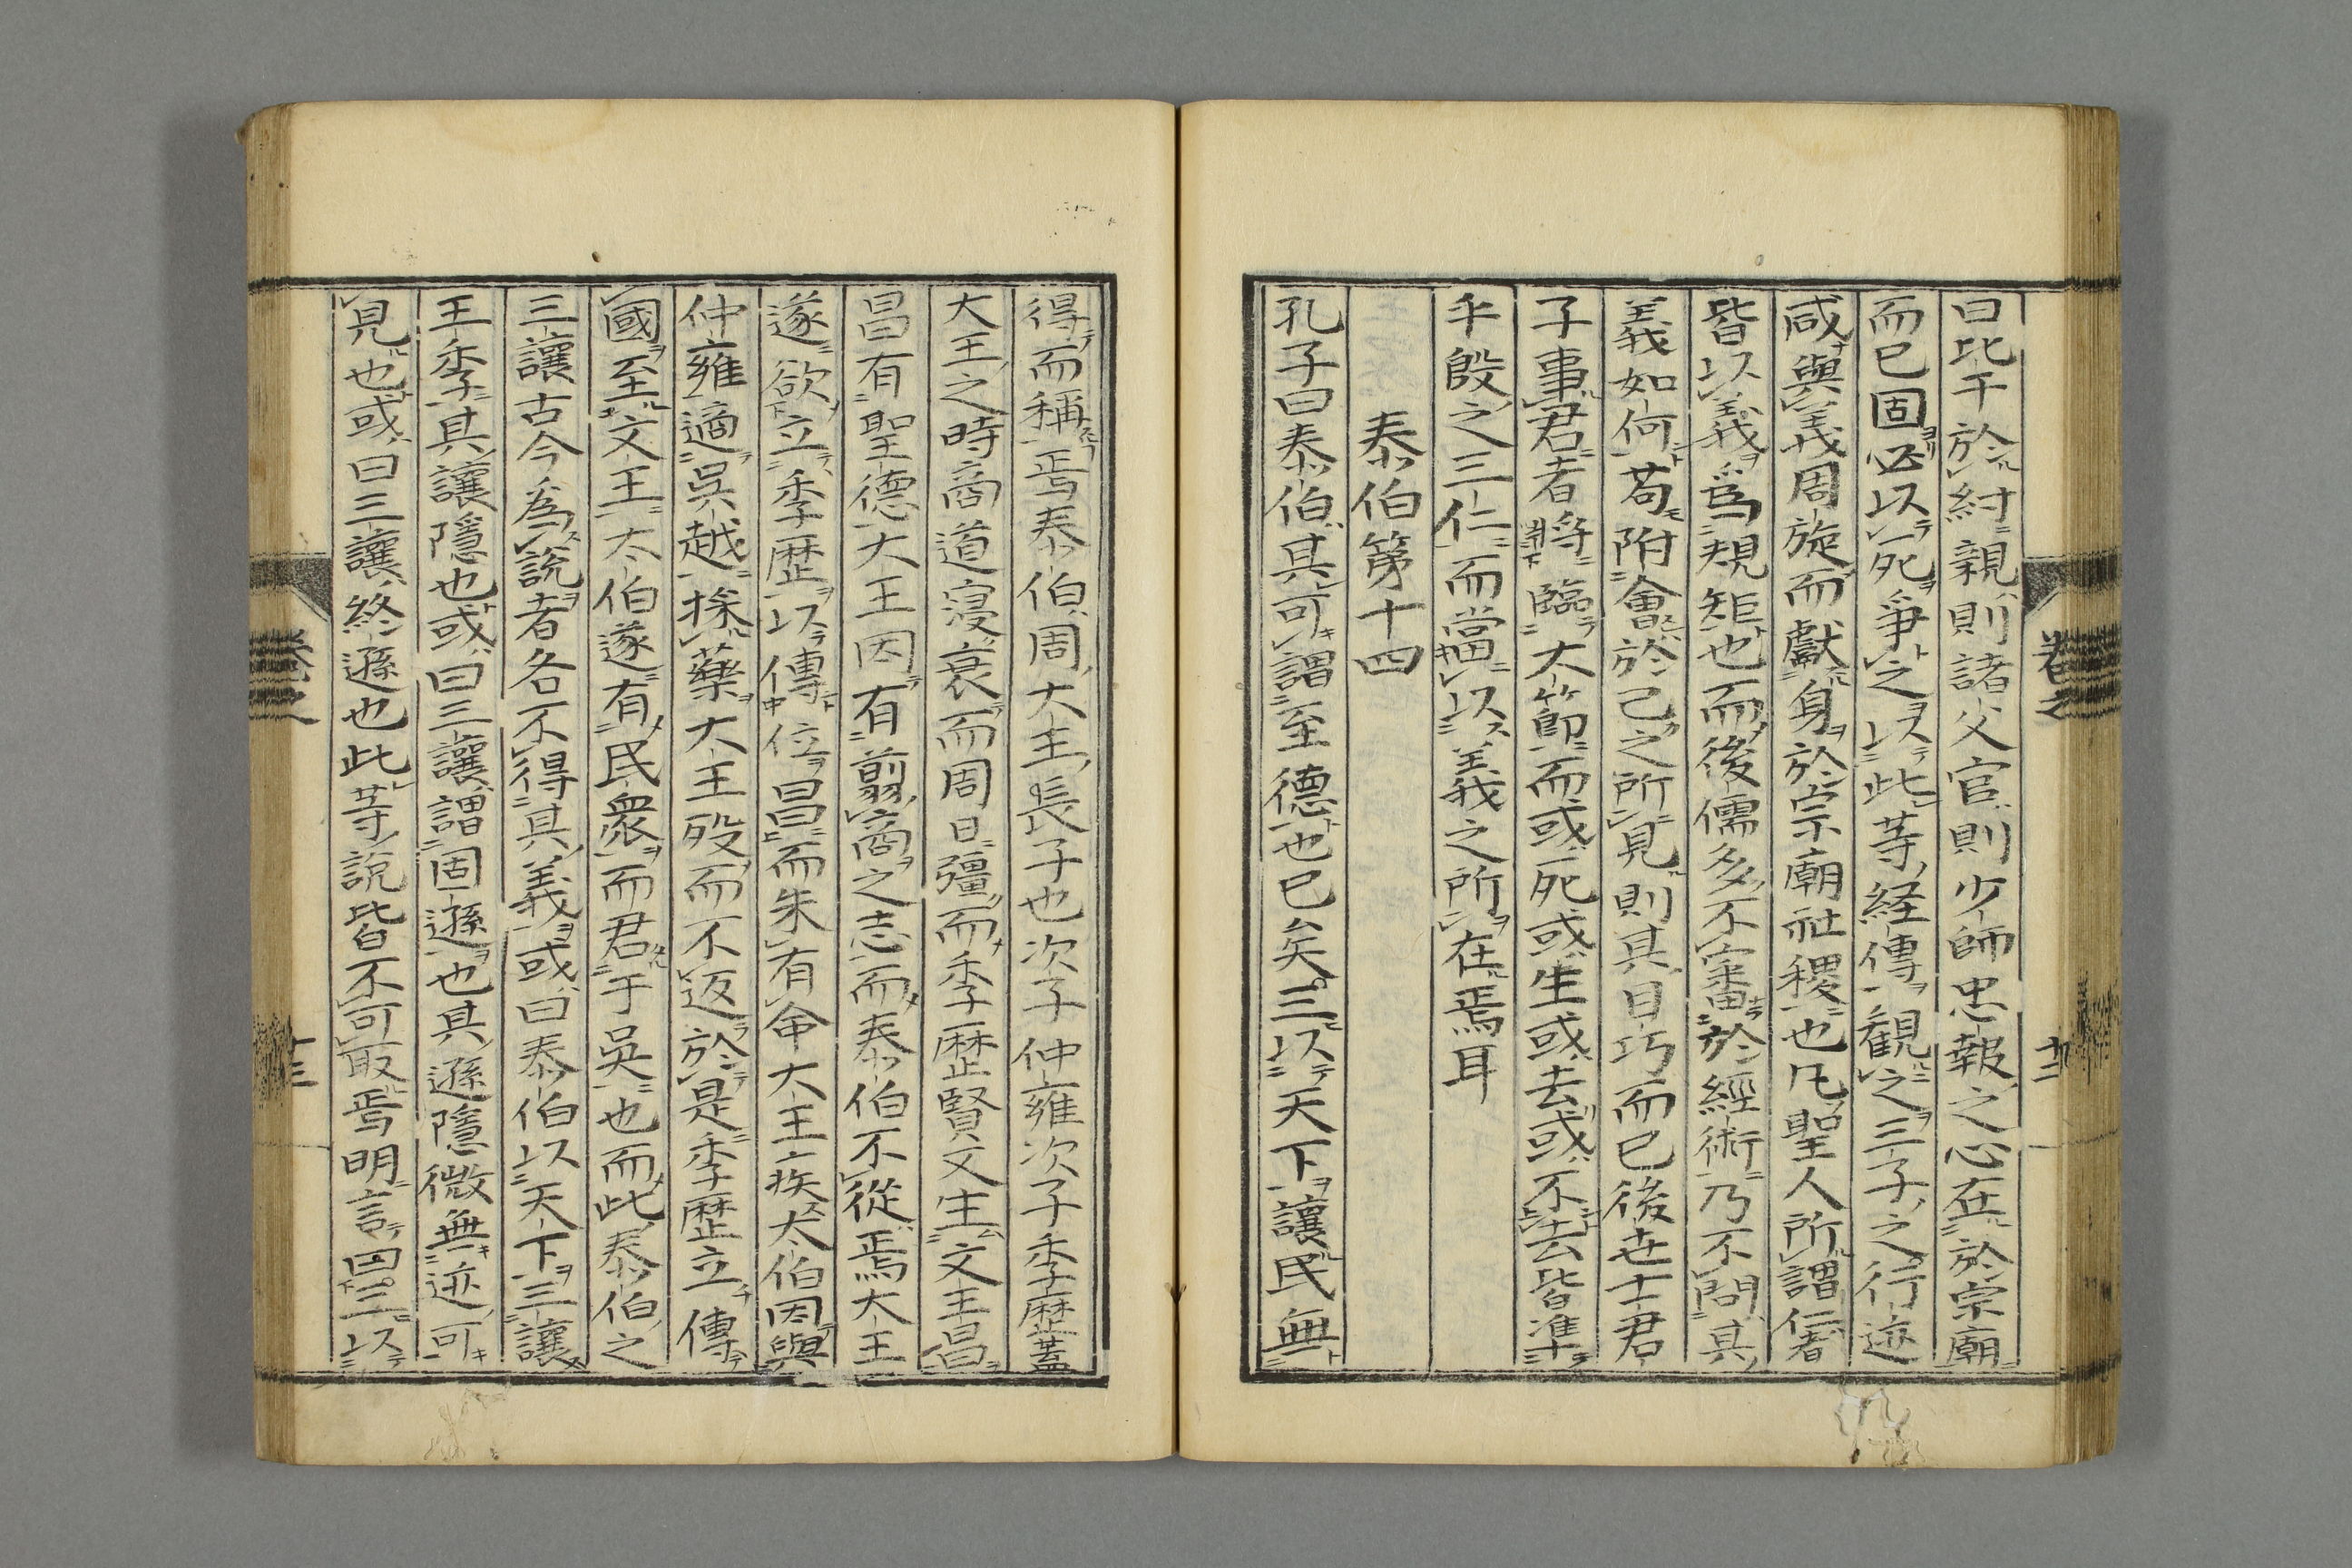 曰比干於紂親則諸父官則少師忠報之心在於宗廟
而已固必以死爭之以此等経傳觀之三子之行迹
咸與義周旋而獻身於宗廟社稷也凡聖人所謂仁者
皆以義爲規矩也而後儒多不審於經術乃不問其
義如何苟附會於己之所見則其曰巧而已後世士君
子事君者將臨大節而或死或生或去或不去皆準
乎殷之三仁而當以義之所在焉耳
泰伯第十四
孔子曰泰伯其可謂至德也已矣三以天下讓民無
得而稱焉泰伯周大王長子也次子仲雍次子季歷蓋
大王之時商道寖衰而周日彊而季歷賢又生文王昌
昌有聖德大王因有翦商之志而泰伯不從焉大王
遂欲立季歷以傳位昌而未有命大王疾太伯因與
仲雍適吳越採藥大王歿而不返於是季歷立傳
國至文王太伯遂有民衆而君于吳也而此泰伯之
三讓古今為說者各不得其義或曰泰伯以天下三讓
王季其讓隱也或曰三讓謂固遜也其遜隱微無迹可
見也或曰三讓終遜也此等說皆不可取焉明言曰三以
卷之
十二
卷之
十三